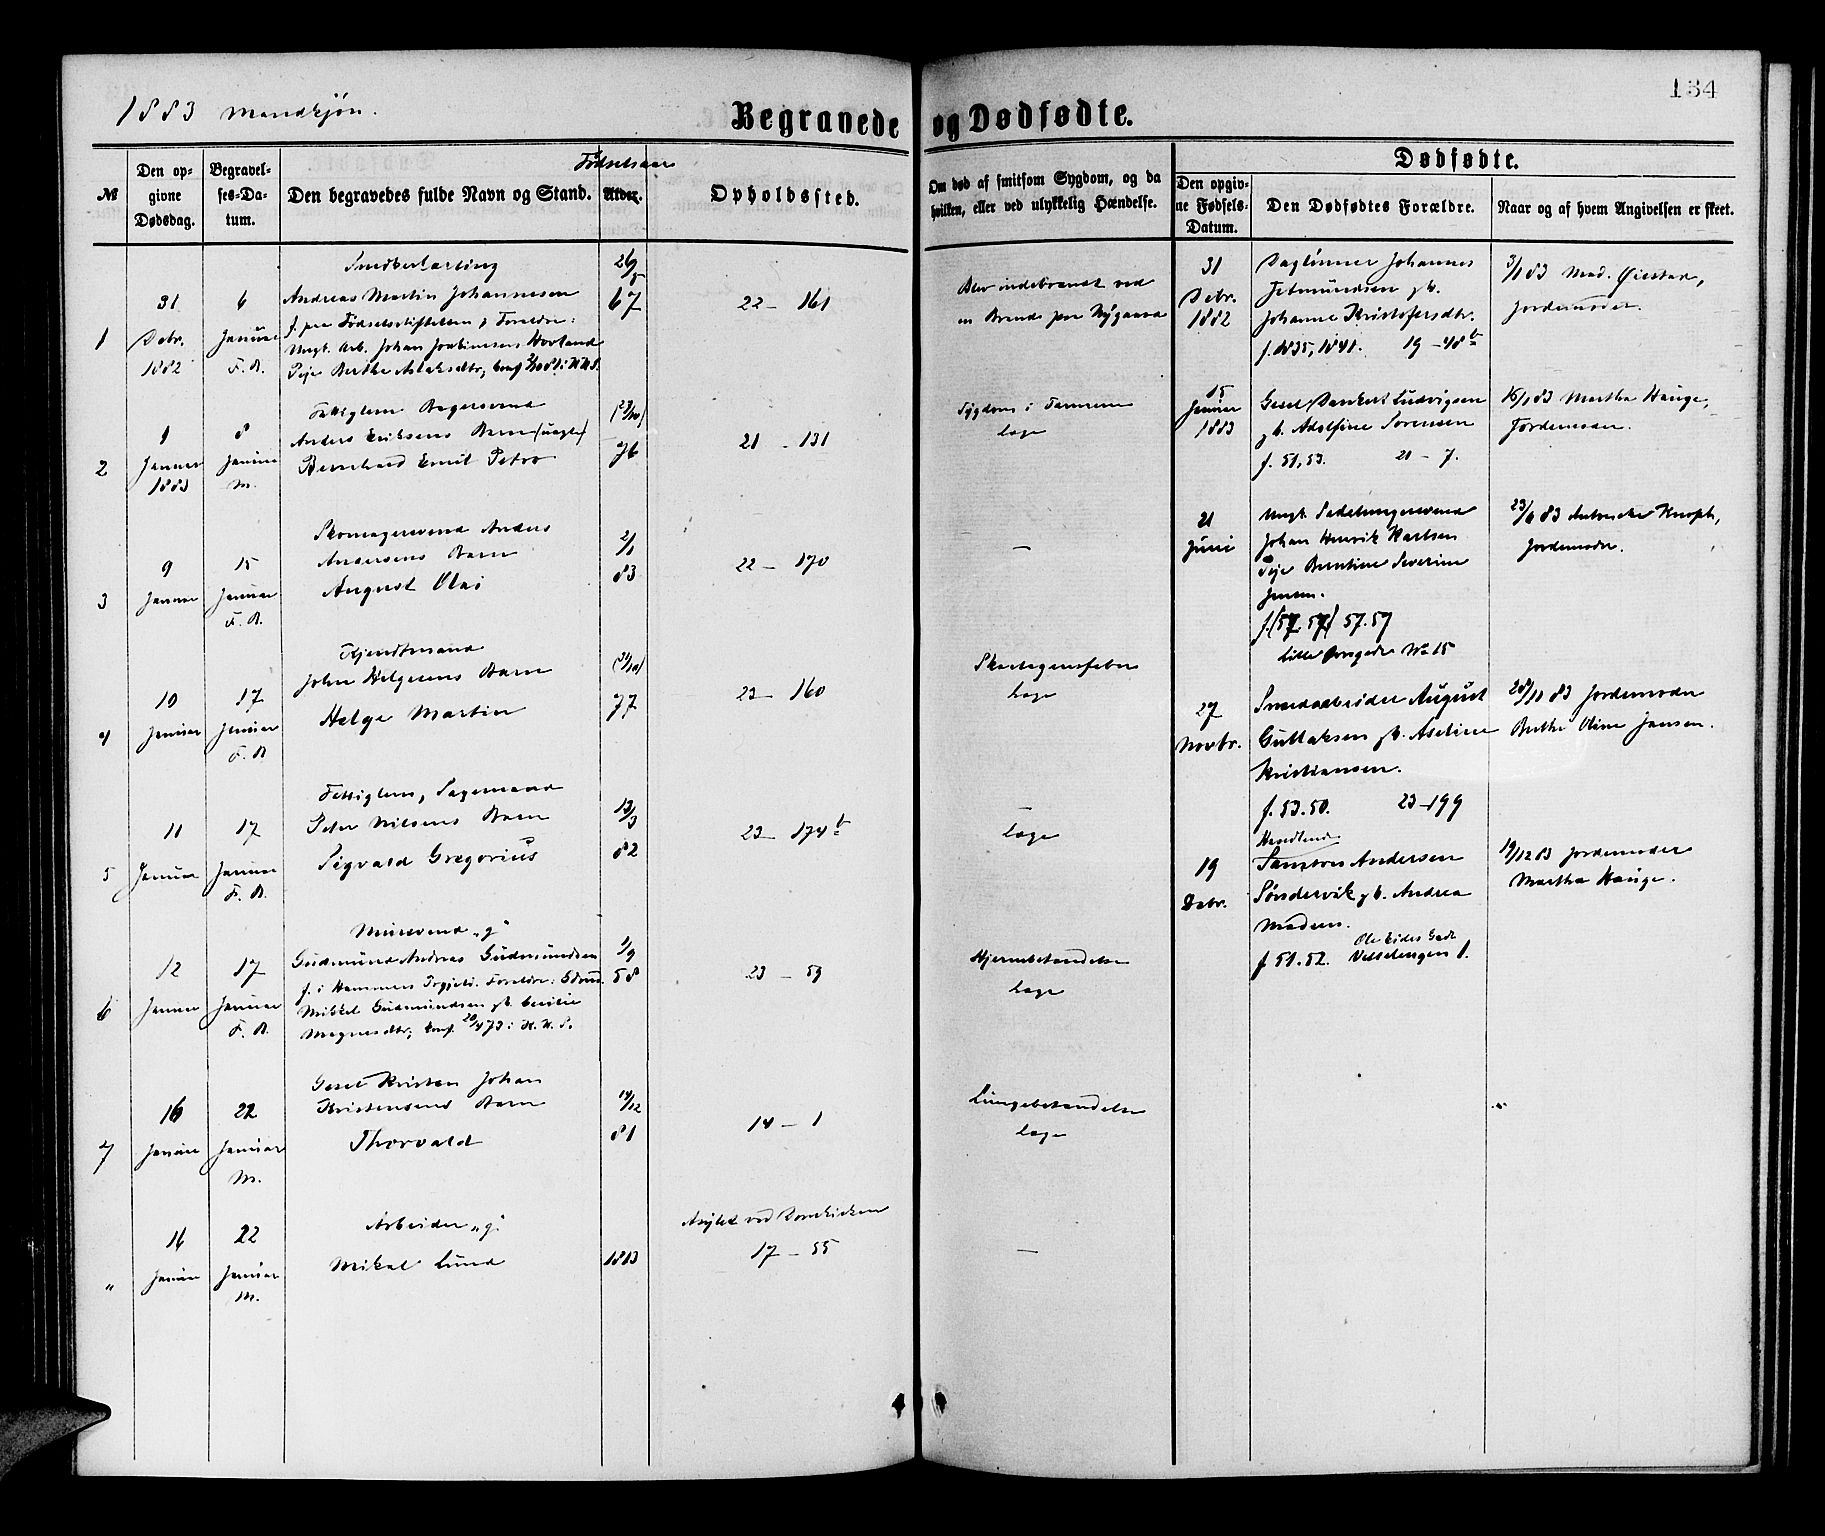 1883 Mandkjøn.
Begravede og Dødfødte.
134
№
Den opgivne Dødsdag.
Begravelses-Datum.
Den begravedes fulde Navn og Stand.
Fødselsaar
Alder.
Opholdssted.
Om død af smitsom Sygdom, og da hvilken, eller ved ulykkelig Hændelse.
Dødfødte.
Den opgivne Fødsels-Datum.
Den Dødfødtes Forældre.
Naar og af hvem Angivelsen er skeet.
1
31 Debr. 1882
6 Januar F. B.
Smedberlærling
Andreas Martin Johannesen
f. paa Fødselsstiftelsen, Forældre:
Ungk. Arb. Johan Hovland
Pige Berthe Aslaksdtr,
26/5 67
22 – 161
Blev indebrændt ved
en Brand paa Nygaard
2
1 Januar 1883
8 Januar M.
Fattiglem Bagersvend
Anders Eriksens Barn (uægte)
Bernhard Emil Petro
76
21 – 131
Sygdom i Tarmene
Læge
3
9 Januar
15 Januar F. B.
Skomagersvend Anders
Andersens Barn
August Olai
2/1 83
22 – 170
–
4
10 Januar
17 Januar F. B.
John Helgesens Barn
Helge Martin
77
23 – 160
Skarlagensfeber
Læge
5
11 Januar
17 Januar F. B.
Fattiglem, Sagemand
Peter Nilsens Barn
Sigvald Gregorius
13/3 82
23 – 174 b
–
Læge
6
12 Januar
17 Januar F. B.
Mursvend „g“
Gudmund Andreas Gudmundsen
f. i Hammers Prgjeld. Forældre:
Mikkel Gudmundsen gb.
Magnesdtr, konf. 20/4 73 i N. K. S.
1/9 58
23 – 59
Hjernebetændelse
Læge
7
16 Januar
22 Januar M.
Gesel Kristen Johan
Kristensens Barn
Thorvald
14/12 81
14 – 1
Lungebetændelse
Læge
„
16 Januar
22 Januar M.
Arbeider „g“
Mikal Lund
1813
Asylet ved Domkirken
17 – 55
–
31 Debr. 1882
Dagleiner Johannes
Fetmundsen gb.
Johanne Kristofersdtr.
f. 1835, 1841. 19 – 48 b
3/1 83 Mad. Øiestad,
Jordemoder.
15 Januar 1883
Gesel Dankert Ludvigsen
gb. Adolfine Sørensen
f. 51, 53. 21 – 7.
16/1 83 Martha Hauge,
Jordemoder.
21 Juni
Ungk. Sadelmagersvend
Johan Henrik Karlsen
Pige Berntine Severine
Jensen.
f. (57, 57) 57. 57
Lille Øvregade No 15
23/6 83
Jordemoder.
27 Novbr.
Smedarbeider August
Gullaksen gb. Aseline
Kristiansen.
f. 53. 50. 23 – 199
28/11 83 Jordemoder
Berthe Oline Jansen.
19 Debr.
Handlende
Andersen
Søndervik gb. Andrea
Madsen.
f 51. 52. Ole Eides Gade
1.
19/12 83 Jordemoder
Martha Hauge.